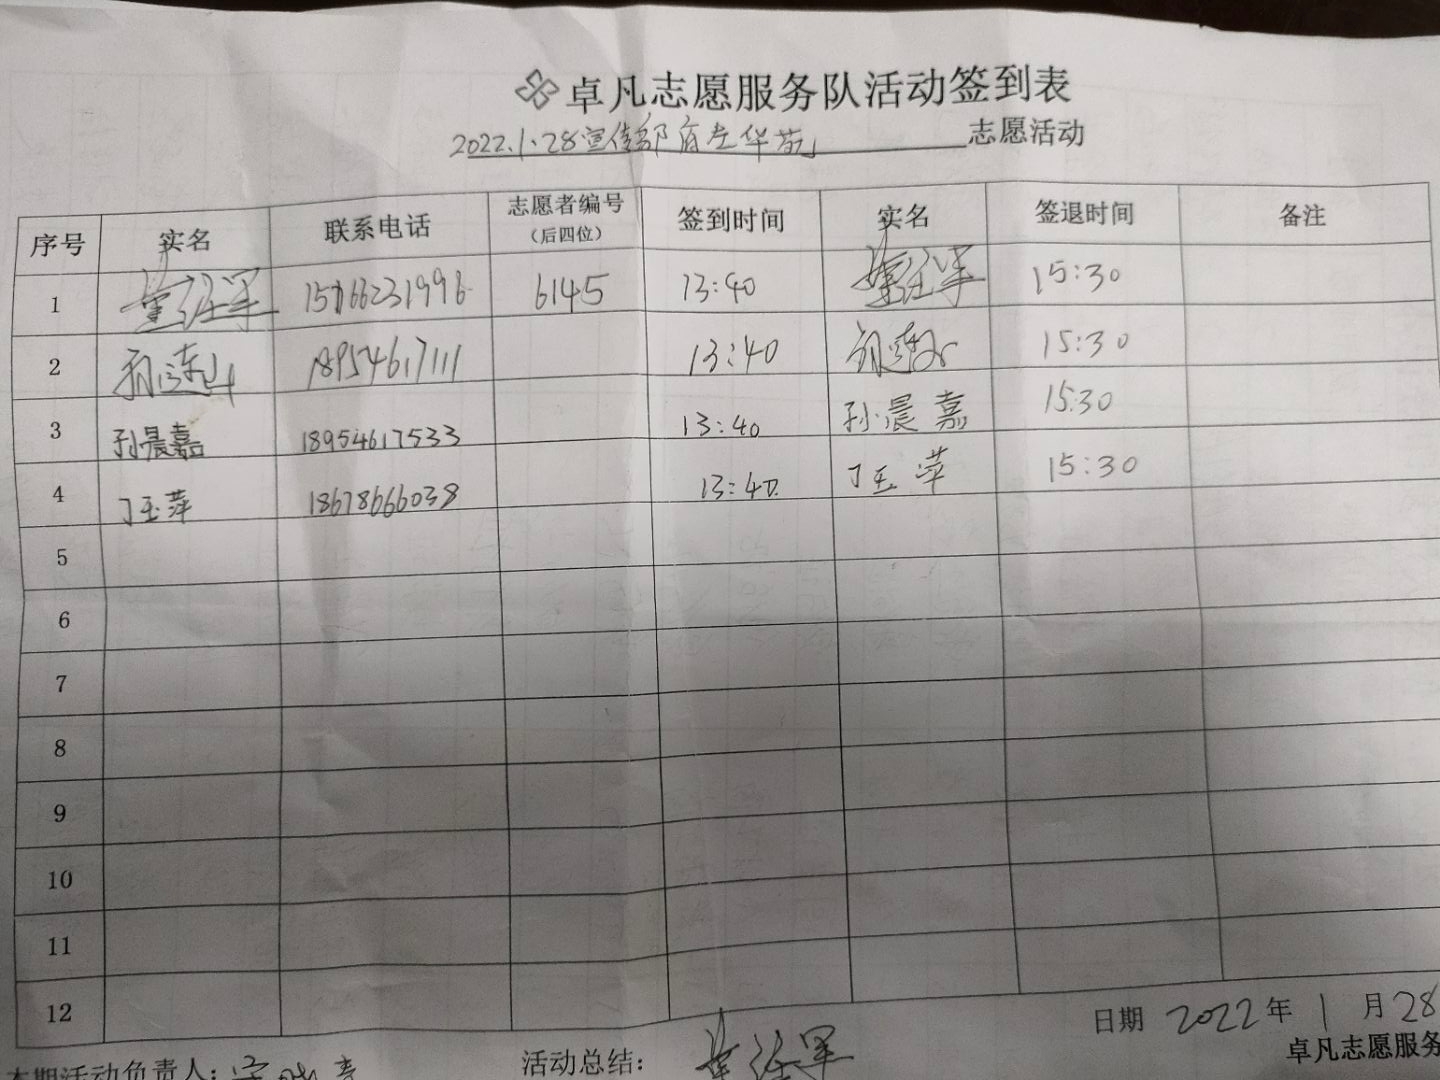 卓凡志愿服务队活动签到表
2022.1.28宣传部府左华苑 志愿活动
序号 实名 联系电话 志愿者编号（后四位） 签到时间 实名 签退时间 备注
1 15166231996 6145 13:40 15:30
2 孙连山 18954617111 13:40 15:30
3 孙晨嘉 18954617533 13:40 孙晨嘉 15:30
4 丁玉萍 18678666038 13:40 丁玉萍 15:30
5
6
7
8
9
10
11
12
日期 2022年1月28
卓凡志愿服务
本期活动负责人: 活动总结: